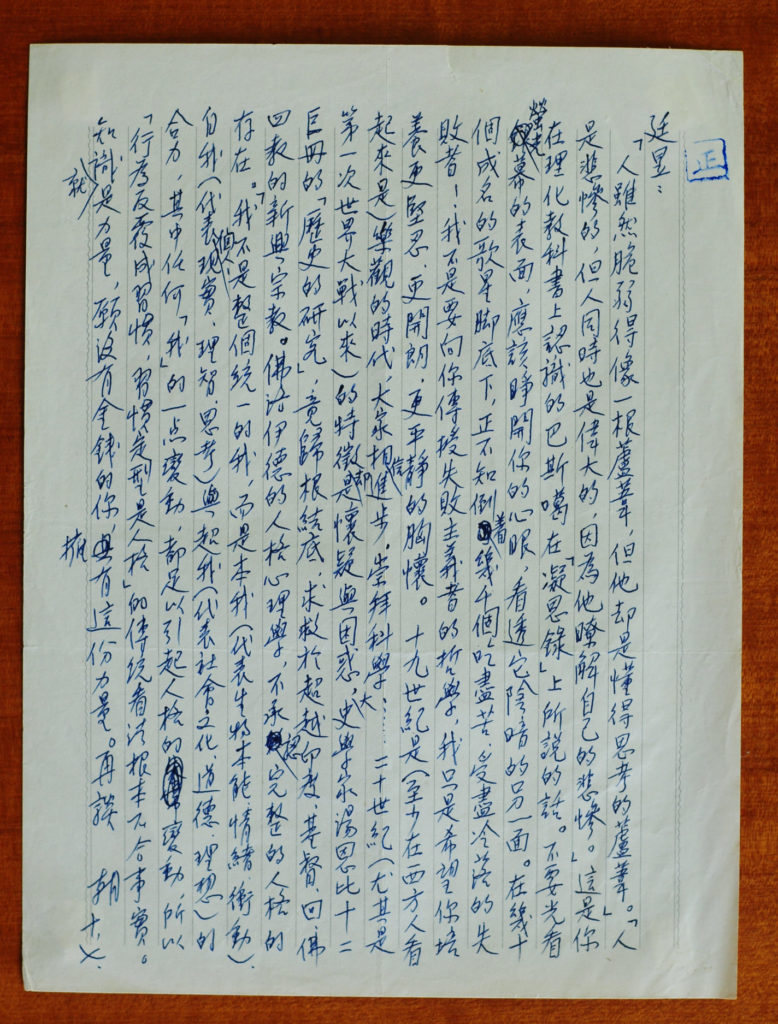 正
廷昱：
「人雖然脆弱得像一根蘆葦，但他却是懂得思考的蘆葦。」「人
是悲慘的，但人同時也是偉大的，因為他瞭解自己的悲慘。」這是你
在理化教科書上認識的巴斯噶在「凝思錄」上所說的話。不要光看
螢光幕的表面，應該睜開你的心眼，看透它陰暗的另一面。在幾十
個成名的歌星脚底下，正不知倒着幾千個吃盡苦、受盡冷落的失
敗者！我不是要向你傳授失敗主義者的哲學，我只是希望你培
養更堅忍、更開朗、更平靜的胸懷。十九世紀是（至少在西方人看
起來是）樂觀的時代，大家相信進步，崇拜科學；……二十世紀（尤其是
第一次世界大戰以來）的特徵却是懷疑與困惑，大史學家湯恩比十二
巨冊的「歷史的研究」，竟歸根結底，求救於超越印度、基督、回、佛
四教的新興宗教。佛洛伊德的人格心理學，不承認完整的人格的
存在。「我」不是整個統一的我，而是本我（代表生物本能、情緒、衝動）、
自我（代表現實、理智、思考）與超我（代表社會、文化、道德、理想）的
合力，其中任何「我」的一点變動，都足以引起人格的變動，所以
「行為反覆成習慣，習慣定型是人格」的傳統看法根本不合事實。
知識就是力量，願沒有金錢的你，擁有這份力量。再談　朝　十、七